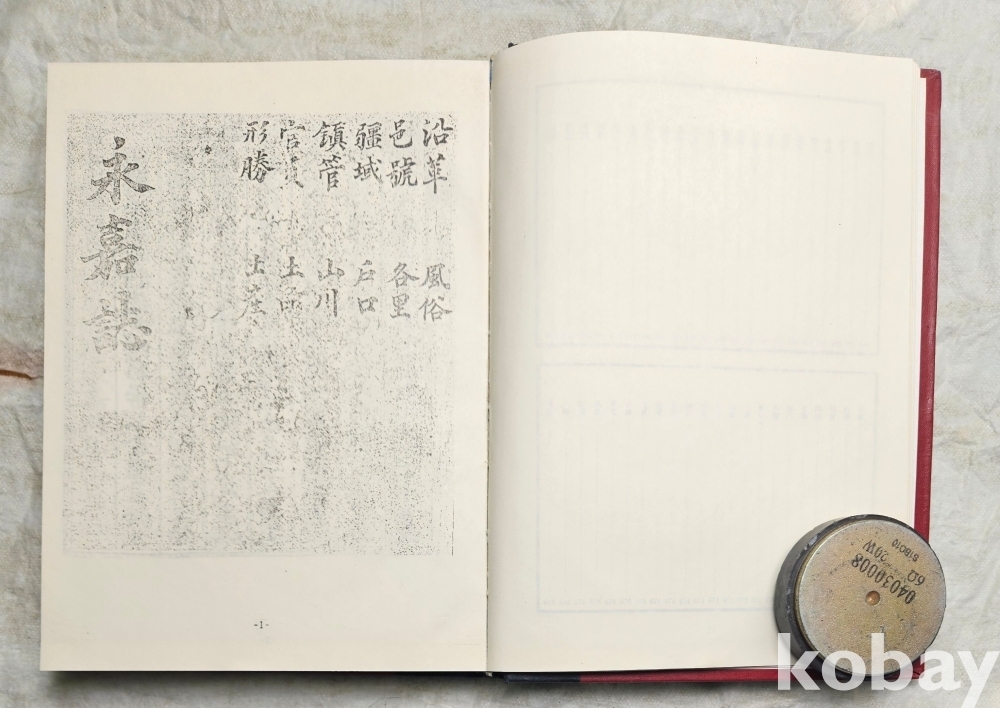 永嘉誌
沿革
邑號
疆域
鎮管
官
形勝
風俗
各里
戶口
山川
土
土産
-1-
04030008
6Ω 20W
kobay